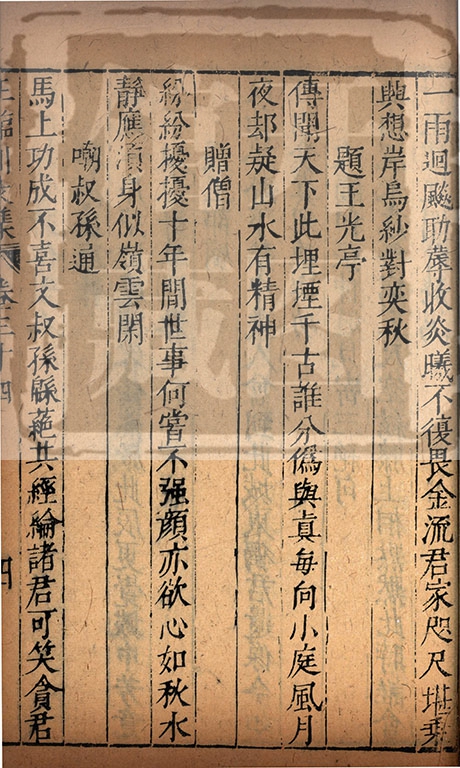 一雨迴飈助蓐收炎曦不復畏金流君家咫尺堪乘
興想岸烏紗對奕秋
題王光亭
傳聞天下此埋堙千古誰分僞與真每向小庭風月
夜却疑山水有精神
贈僧
紛紛擾擾十年間世事何嘗不强顔亦欲心如秋水
靜應須身似嶺雲閑
嘲叔孫通
馬上功成不喜文叔孫緜蕝共經綸諸君可笑貪君
王臨川文集 卷三十四 四